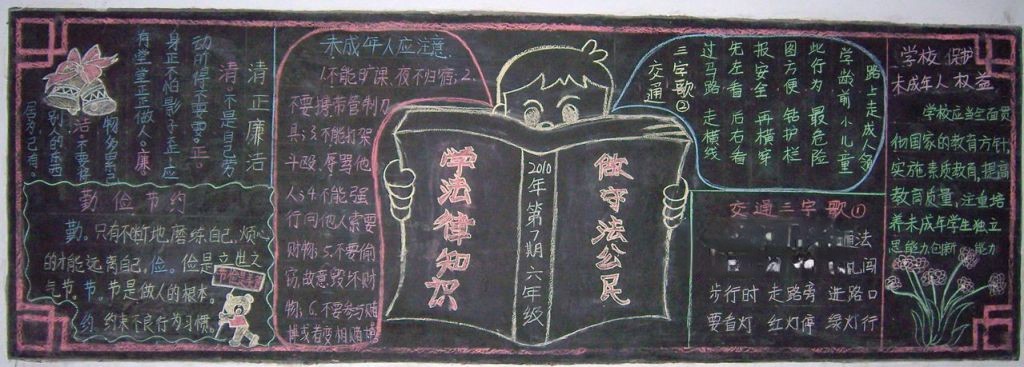 清正廉洁
清。不是自己劳
动所得不要要。正。
身正不怕影子歪,应
有堂堂正正做人。廉
勤俭节约
勤。只有不断地磨练自己,烦心
的才能远离自己,俭。俭是立世之
气节。节。节是做人的根本。
约。约束不良行为习惯。
节俭是美
未成年人应注意
1.不能旷课、夜不归宿;2.
不要携带管制刀
具;3.不能打架
斗殴、辱骂他
人;4.不能强
行向他人索要
财物;5.不要偷
窃、故意毁坏财
物;6.不要参与赌
博或者变相赌博
学法律知识
2010年第7期六年级
做守法公民
交通
三字歌②
过马路 走横线
先左看 后右看
报安全 再横穿
图方便 钻护栏
此行为 最危险
学龄前 小儿童
路上走 成人领
交通三字歌①
步行时 走路旁 进路口
要看灯 红灯停 绿灯行
学校 保护
未成年人 权益
学校应当全面贯
彻国家的教育方针,
实施素质教育,提高
教育质量,注重培
养未成年学生独立
思能力创新 能力